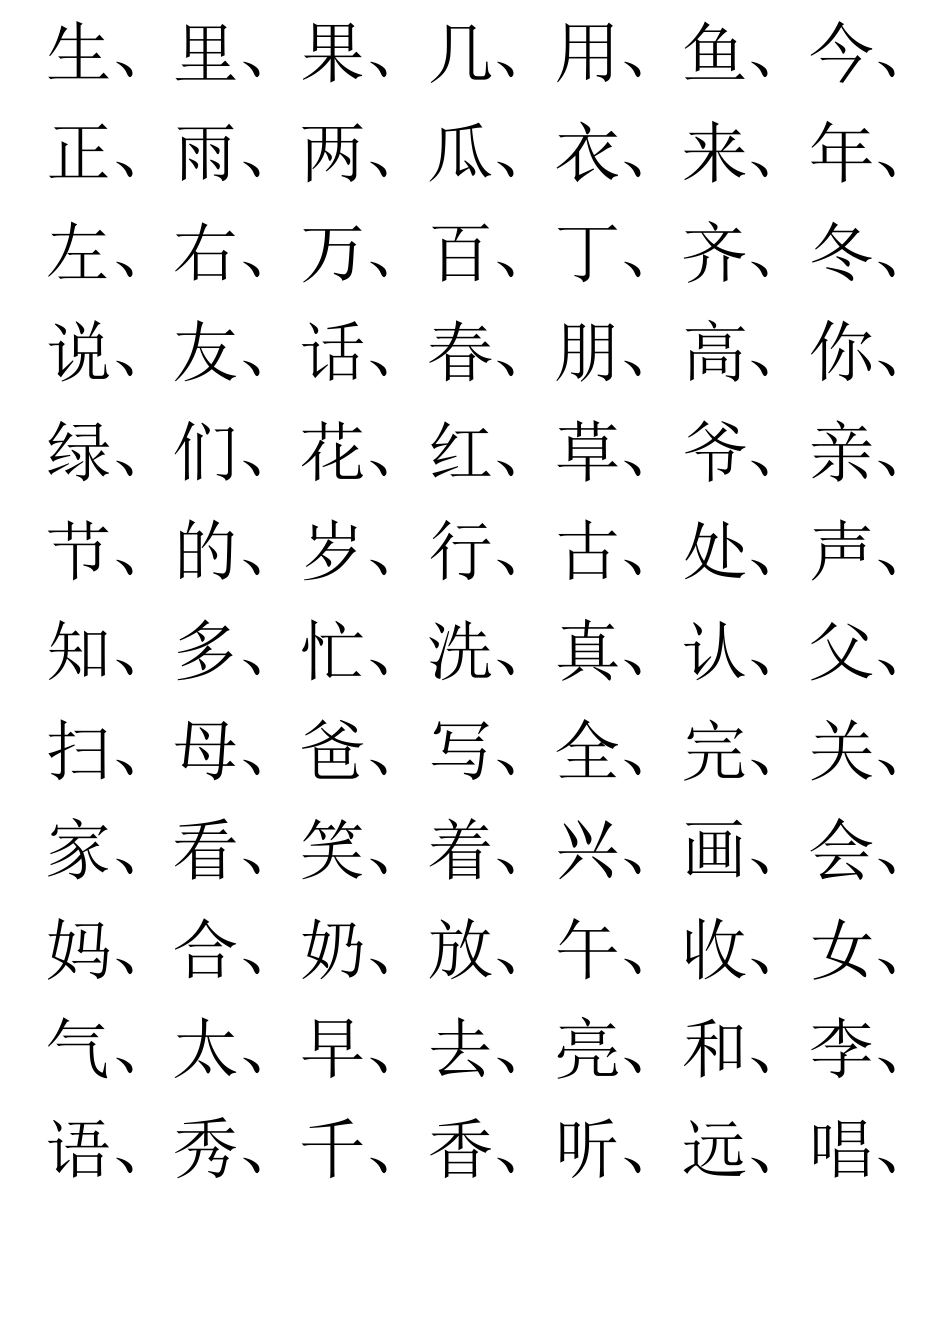 生、里、果、几、用、鱼、今、
正、雨、两、瓜、衣、来、年、
左、右、万、百、丁、齐、冬、
说、友、话、春、朋、高、你、
绿、们、花、红、草、爷、亲、
节、的、岁、行、古、处、声、
知、多、忙、洗、真、认、父、
扫、母、爸、写、全、完、关、
家、看、笑、着、兴、画、会、
妈、合、奶、放、午、收、女、
气、太、早、去、亮、和、李、
语、秀、千、香、听、远、唱、